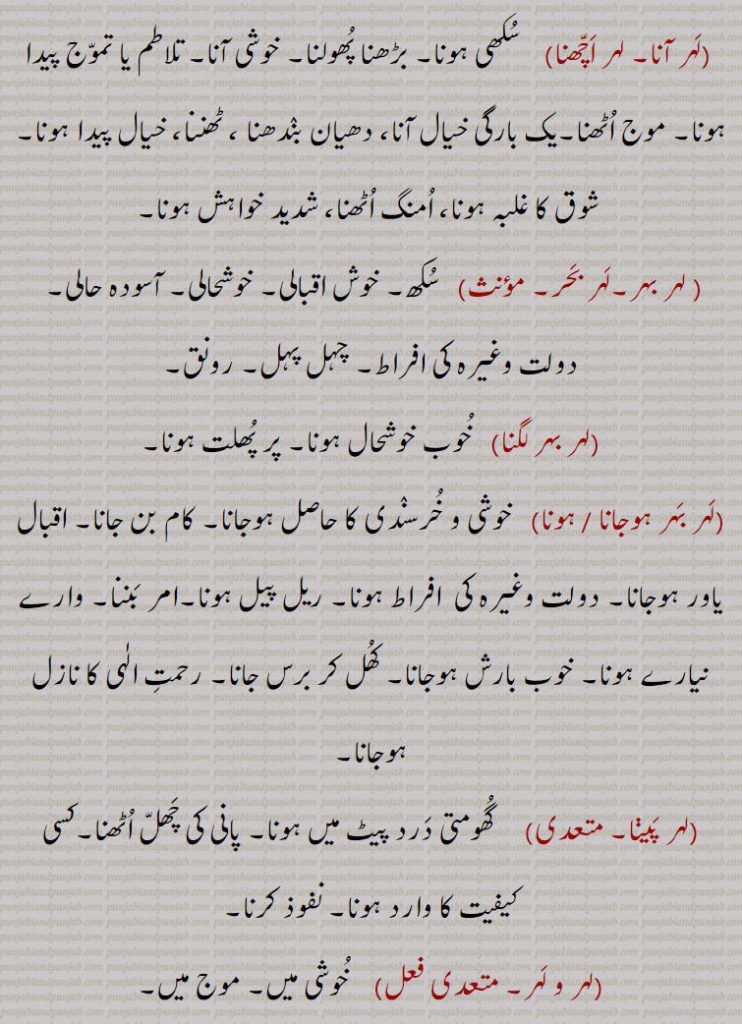 (لَہر آنا۔ لہر اَچّھنا) سُکھی ہونا۔ بڑھنا پُھولنا۔ خوشی آنا۔ تلاطم یا تموّج پیدا
ہونا۔ موج اُٹھنا۔یک بارگی خیال آنا، دھیان بنْدھنا ، ٹھننا، خیال پیدا ہونا۔
شوق کا غلبہ ہونا، اُمنگ اُٹھنا، شدید خواہش ہونا۔
( لہر بہر ۔لَہر بَحَر۔ مؤنث) سُکھ۔ خوش اقبالی۔ خوشحالی۔ آسودہ حالی۔
دولت وغیرہ کی افراط۔ چہل پہل۔ رونق۔
(لہر بہر لگنا) خُوب خوشحال ہونا۔ پر پُھلت ہونا۔
(لَہر بَہَر ہوجانا / ہونا) خوشی و خُرسنْدی کا حاصل ہوجانا۔ کام بن جانا۔ اقبال
یاور ہوجانا۔ دولت وغیرہ کی افراط ہونا۔ ریل پیل ہونا۔امر بَننا۔ وارے
نیارے ہونا۔ خوب بارش ہوجانا۔ کُھل کر برس جانا۔ رحمتِ الٰہی کا نازل
ہوجانا۔
(لہر پَینْا۔ متعدی) گُھومتی دَرد پیٹ میں ہونا۔ پانی کی چَھلّ اُٹھنا۔کسی
کیفیت کا وارد ہونا۔ نفوذ کرنا۔
(لہر و لَہر۔ متعدی فعل) خُوشی میں۔ موج میں۔
punjabiandpunjab.com